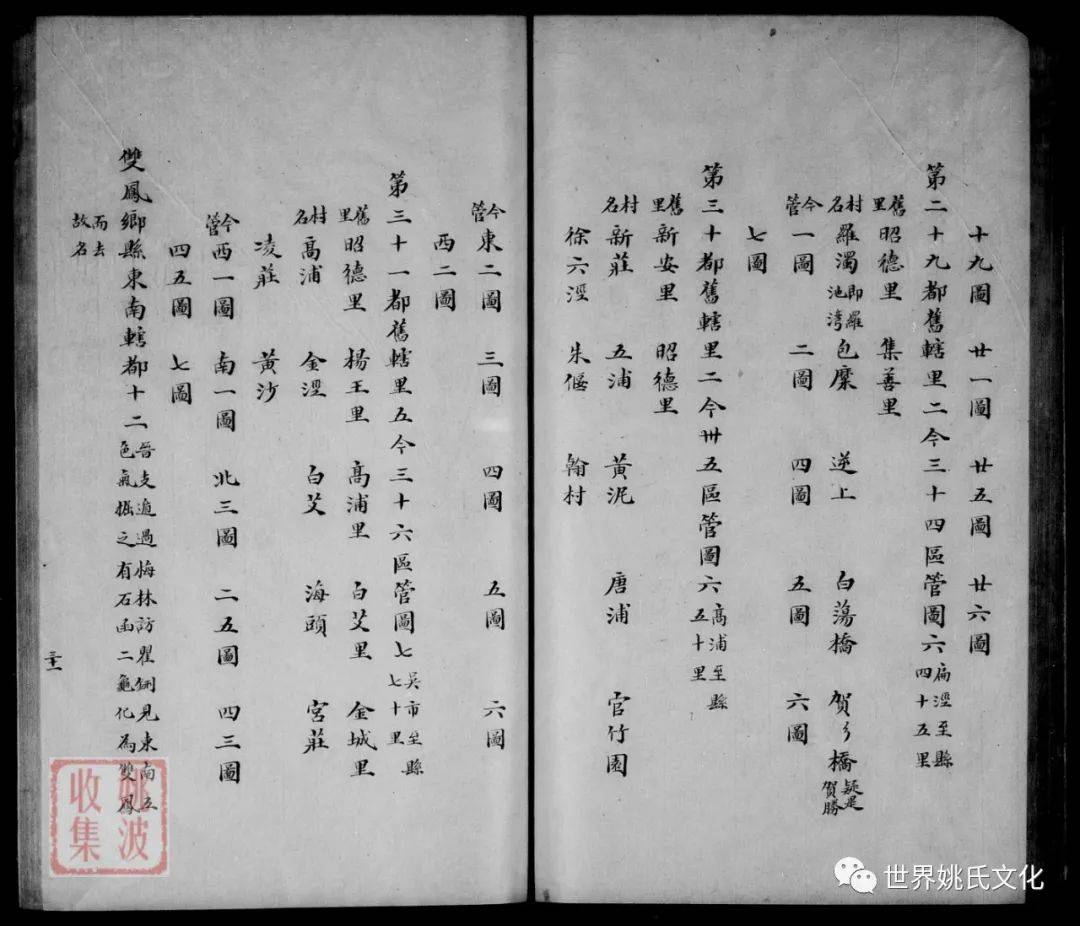 十九圖　廿一圖　廿五圖　廿六圖
第二十九都舊轄里二今三十四區管圖六扁涇至縣四十五里
舊里昭德里　集善里
村名羅濁即羅池灣　包糜　逆上　白蕩橋　賀彡橋疑是賀勝
今管一圖　二圖　四圖　五圖　六圖
七圖
第三十都舊轄里二今卅五區管圖六高浦至縣五十里
舊里新安里　昭德里
村名新莊　五浦　黃泥　唐浦　官竹園
徐六涇　朱偃　翰村
今管東二圖　三圖　四圖　五圖　六圖
西二圖
第三十一都舊轄里五今三十六區管圖七吳市至縣七十里
舊里昭德里　楊王里　高浦里　白艾里　金城里
村名高浦　金涇　白艾　海頭　宮莊
凌莊　黃沙
今管西一圖　南一圖　北三圖　二五圖　四三圖
四五圖　七圖
雙鳳鄉縣東南轄都十二晉支遁過悔林訪瞿硎見東南五色氣掘之有石函二龜化為雙鳳
而去故名
三十一
姚波收集
世界姚氏文化